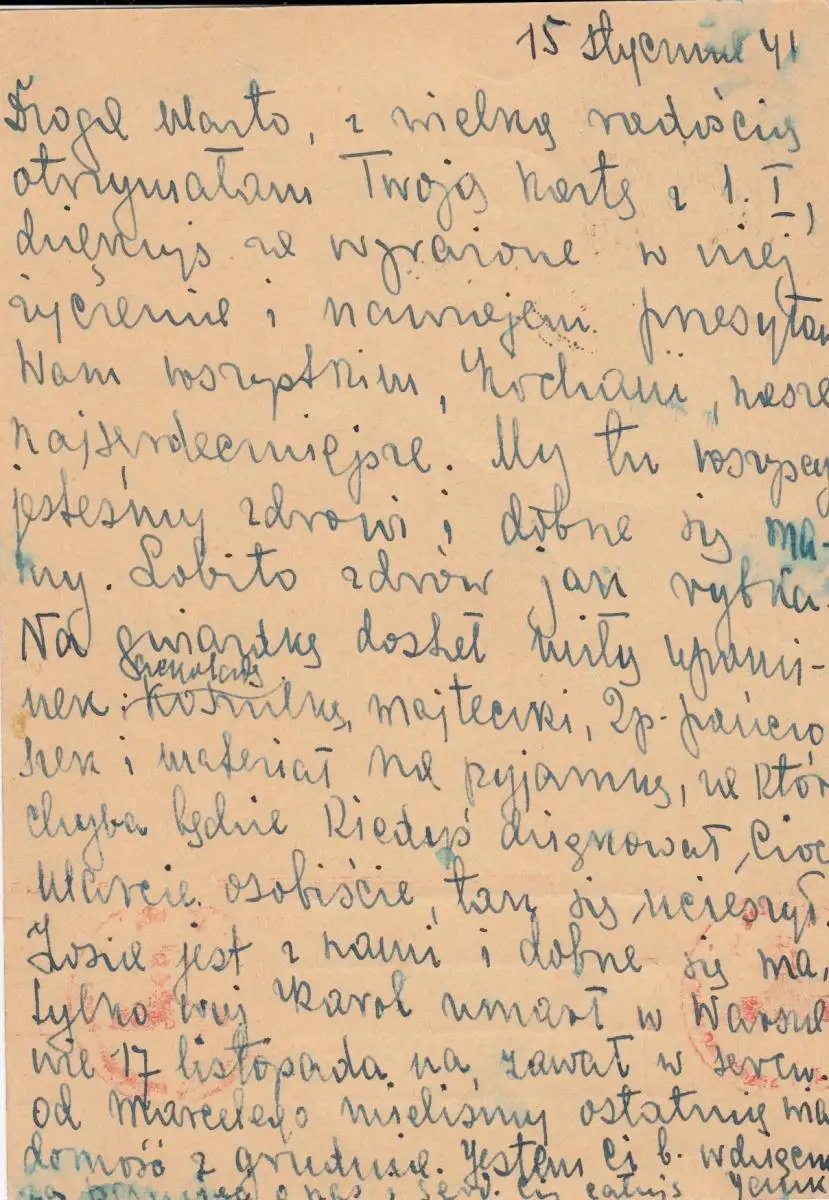 15 stycznia 41
Droga Marto, z wielką radością
otrzymałam Twoją kartę z 1. I,
dziękuję za wyrażone w niej
życzenia i nawzajem przesyłam
Wam wszystkim, Kochani, nasze
najserdeczniejsze. My tu wszyscy
jesteśmy zdrowi i dobrze się ma-
my. Lobito zdrów jak rybka.
Na gwiazdkę doszł miły upomi-
nek: koszulkę, majteczki, 2p. pończo
szek i materiał na pyjamkę, za któr
chyba będzie kiedyś dziękował Cioc
Marcie osobiście, tak się ucieszył.
Zosia jest z nami i dobrze się ma,
tylko wuj Karol umarł w Warsza
wie 17 listopada na zawał w sercu.
od Marcelego mieliśmy ostatnią wia
domość z grudnia. Jestem Ci b. wdzięczn
za pamięć o nas i serd. Cię całuję